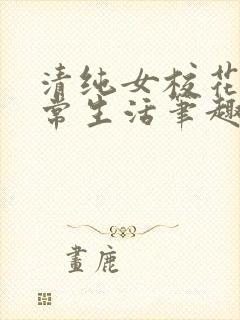 清纯女校花
常生活笔趣
畫鹿